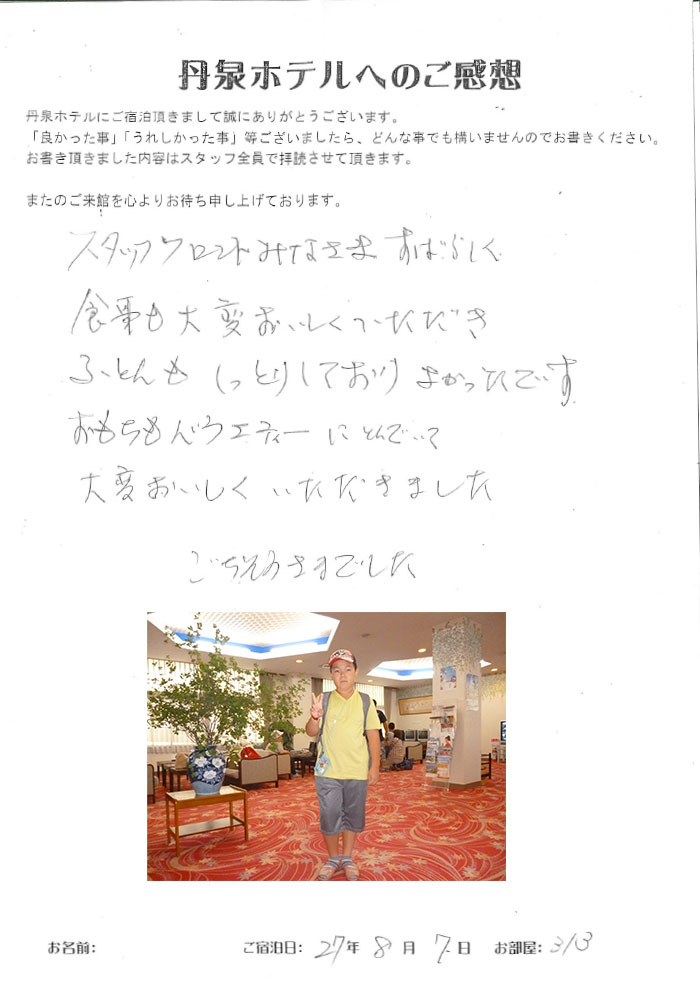 丹泉ホテルへのご感想
丹泉ホテルにご宿泊頂きまして誠にありがとうございます。
「良かった事」「うれしかった事」等ございましたら、どんな事でも構いませんのでお書きください。
お書き頂きました内容はスタッフ全員で拝読させて頂きます。
またのご来館を心よりお待ち申し上げております。
スタッフフロントみなさますばらしく
食事も大変おいしくいただき
ふとんもしっとりしておりよかったです
おもちもバラエティーにとんでいて
大変おいしくいただきました
ごちそうさまでした
お名前: ご宿泊日: 27年 8月 7日 お部屋: 313